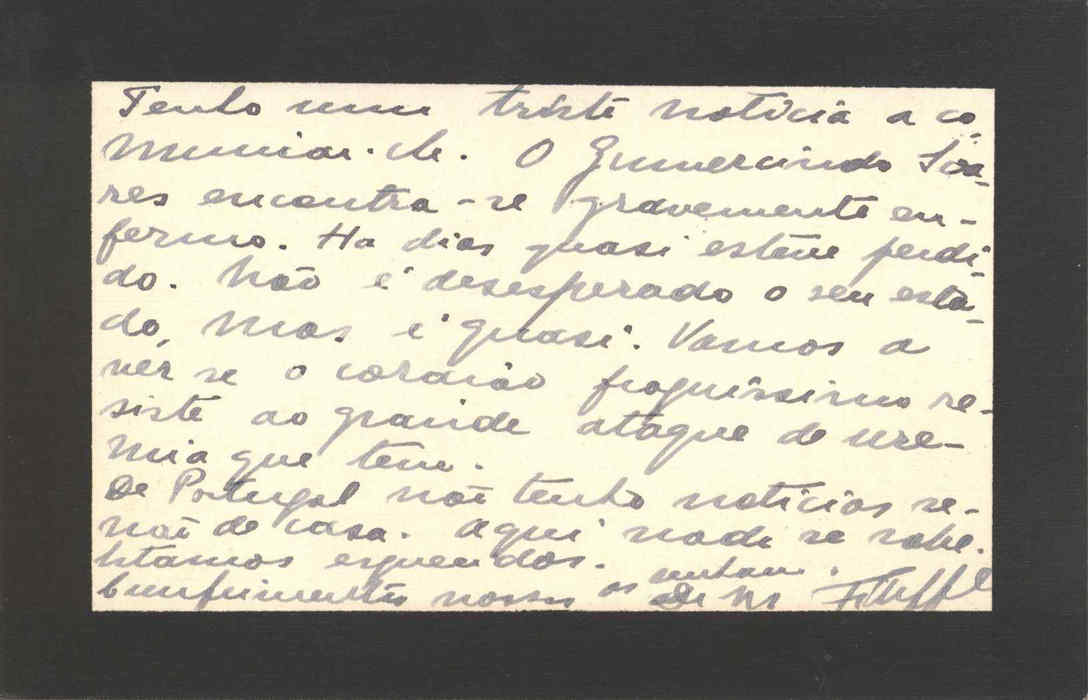 Tenho uma triste noticia a co-
municar-lhe. O Gumercindo Soa-
res encontra-se gravemente en-
fermo. Ha dias quasi esteve perdi-
do. Não é desesperado o seu esta-
do, mas é quasi. Vamos a
ver se o coração fraquissimo re-
siste ao grande ataque de ure-
mia que tem.
De Portugal não tenho noticias se-
não de casa. Aqui nada se sabe.
Estamos esquecidos.
Cumprimentos nossos